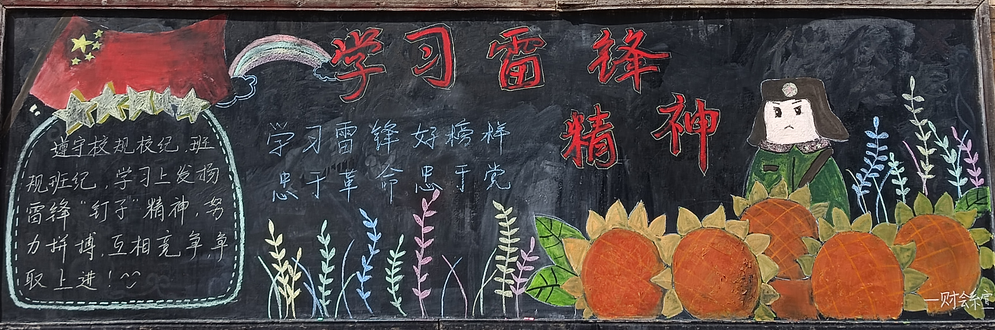 学习雷锋
精神
学习雷锋好榜样
忠于革命忠于党
遵守校规校纪，班
规班纪，学习上发扬
雷锋“钉子”精神，努
力拼搏，互相竞争，争
取上进！